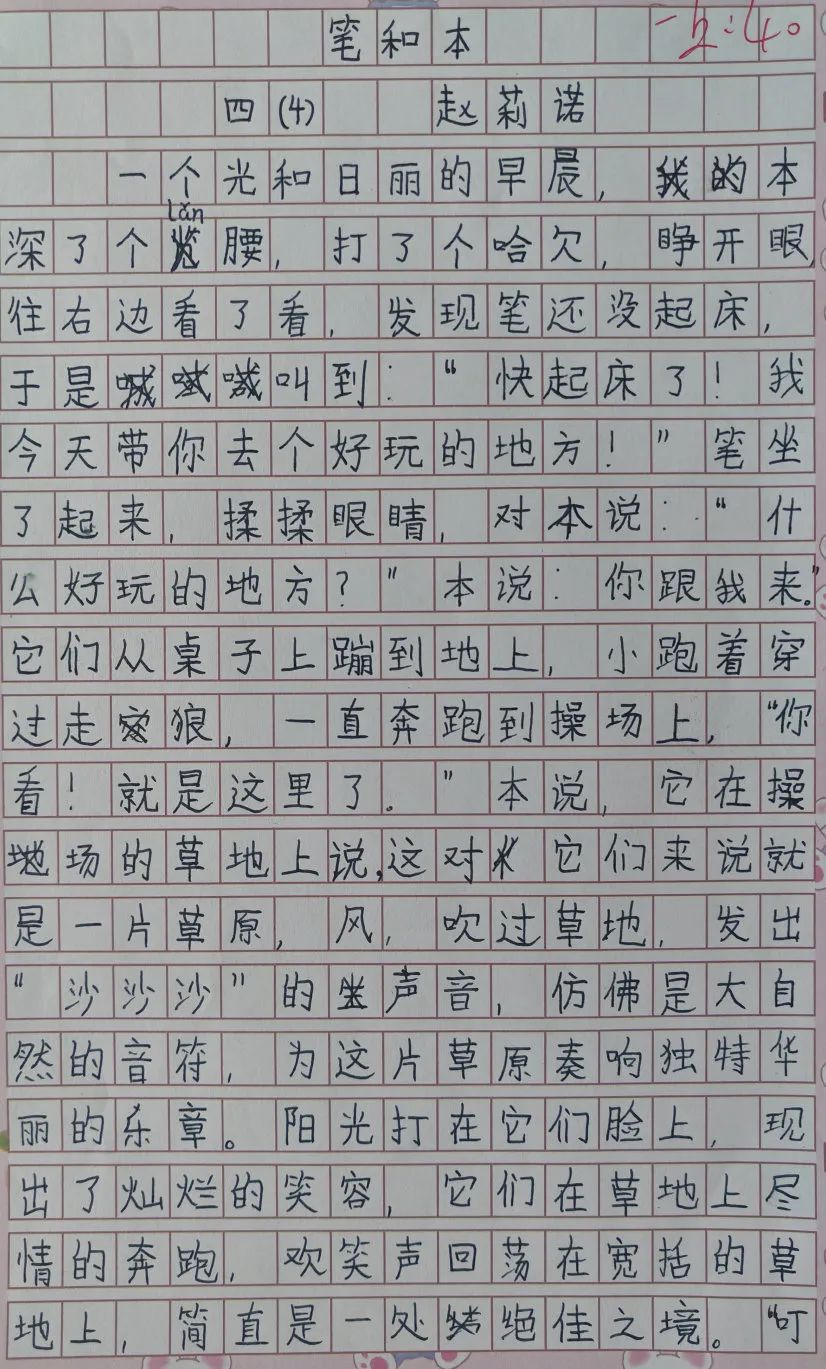 笔和本
四(4) 赵莉诺
一个光和日丽的早晨，我的本
深了个懒腰，打了个哈欠，睁开眼，
往右边看了看，发现笔还没起床，
于是喊叫到：“快起床了！我
今天带你去个好玩的地方！”笔坐
了起来，揉揉眼睛，对本说：“什
么好玩的地方？”本说：你跟我来。”
它们从桌子上蹦到地上，小跑着穿
过走狼，一直奔跑到操场上，“你
看！就是这里了。”本说，它在操
场的草地上说，这对它们来说就
是一片草原，风，吹过草地，发出
“沙沙沙”的声音，仿佛是大自
然的音符，为这片草原奏响独特华
丽的乐章。阳光打在它们脸上，现
出了灿烂的笑容，它们在草地上尽
情的奔跑，欢笑声回荡在宽括的草
地上，简直是一处绝佳之境。“叮